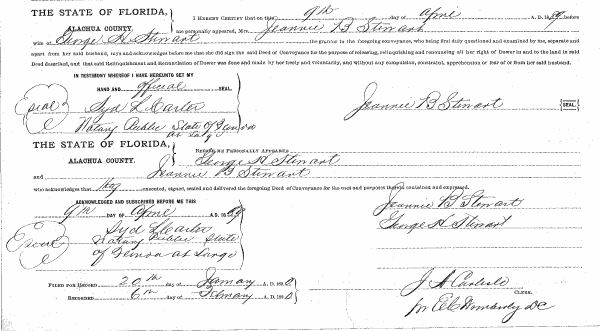 THE STATE OF FLORIDA,
ALACHUA COUNTY.
I HEREBY CERTIFY that on this 9th day of April A. D. 1889, before
me personally appeared, Mrs. Jeannie B Stewart
wife of George H Stewart the grantor in the foregoing conveyance, who being first duly questioned and examined by me, separate and
apart from her said husband, says and acknowledges before me that she did sign the said Deed of Conveyance for the purpose of releasing, relinquishing and renouncing all her right of Dower in and to the land in said
Deed described, and that said Relinquishment and Renunciation of Dower was done and made by her freely and voluntarily, and without any compulsion, constraint, apprehension or fear of or from her said husband.
IN TESTIMONY WHEREOF I HAVE HEREUNTO SET MY
HAND AND official SEAL.
Syd L Carter
Notary Public State of
at Large
Jeannie B Stewart {SEAL}
THE STATE OF FLORIDA,
ALACHUA COUNTY.
PERSONALLY APPEARED George H Stewart
and Jeannie B Stewart
who acknowledges that they executed, signed, sealed and delivered the foregoing Deed of Conveyance for the uses and purposes therein contained and expressed.
ACKNOWLEDGED AND SUBSCRIBED BEFORE ME THIS
9th DAY OF April A. D. 1889
Syd L Carter
Notary Public State
of at Large
Jeannie B Stewart
George H Stewart
FILED FOR RECORD 20th day of January A. D. 1890
RECORDED 6th day of February A. D. 1890
J A Carlisle
CLERK.
for DC